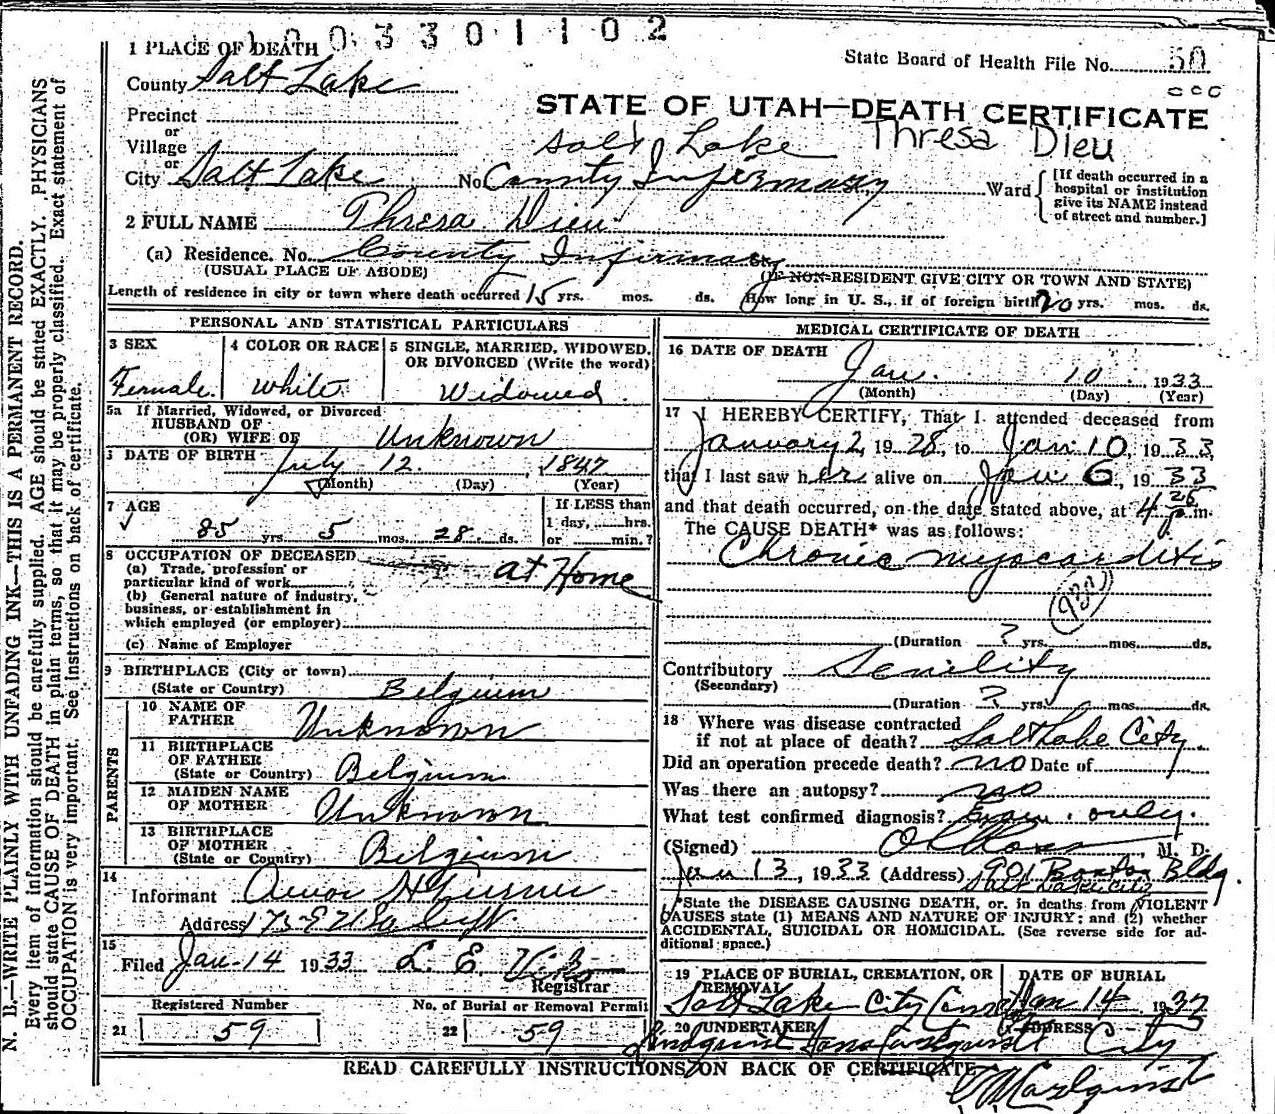 0 0 3 3 0 1 1 0 2
1 PLACE OF DEATH
State Board of Health File No. 50
County Salt Lake
STATE OF UTAH—DEATH CERTIFICATE
Precinct
or
Village
Salt Lake Thresa Dieu
or
City Salt Lake No. County Infirmary Ward
[If death occurred in a
hospital or institution
give its NAME instead
of street and number.]
2 FULL NAME Thresa Dieu
(a) Residence. No. County Infirmary St.
(USUAL PLACE OF ABODE) (IF NON-RESIDENT GIVE CITY OR TOWN AND STATE)
Length of residence in city or town where death occurred 15 yrs. mos. ds. How long in U. S., if of foreign birth 20 yrs. mos. ds.
PERSONAL AND STATISTICAL PARTICULARS
3 SEX
Female
4 COLOR OR RACE
White
5 SINGLE, MARRIED, WIDOWED,
OR DIVORCED (Write the word)
Widowed
5a If Married, Widowed, or Divorced
HUSBAND OF
(OR) WIFE OF Unknown
6 DATE OF BIRTH
July 12 1847
(Month) (Day) (Year)
7 AGE
85 yrs 5 mos. 28 ds.
If LESS than
1 day, hrs.
or min.?
8 OCCUPATION OF DECEASED
(a) Trade, profession or
particular kind of work at Home
(b) General nature of industry,
business, or establishment in
which employed (or employer)
(c) Name of Employer
9 BIRTHPLACE (City or town)
(State or Country) Belgium
PARENTS
10 NAME OF
FATHER Unknown
11 BIRTHPLACE
OF FATHER
(State or Country) Belgium
12 MAIDEN NAME
OF MOTHER Unknown
13 BIRTHPLACE
OF MOTHER
(State or Country) Belgium
14
Informant
Address
15
Filed Jan-14 1933 L. E.
Registrar
Registered Number
21 59
No. of Burial or Removal Permit
22 59
MEDICAL CERTIFICATE OF DEATH
16 DATE OF DEATH
Jan. 10 1933
(Month) (Day) (Year)
17 I HEREBY CERTIFY, That I attended deceased from
January 2, 1928, to Jan 10, 1933
that I last saw her alive on Jan 6, 1933
and that death occurred, on the date stated above, at 4 25 p.m.
The CAUSE DEATH* was as follows:
Chronic myocarditis
(Duration ? yrs. mos. ds.
Contributory Senility
(Secondary)
(Duration ? yrs. mos. ds.
18 Where was disease contracted
if not at place of death? Salt Lake City.
Did an operation precede death? no Date of
Was there an autopsy? no
What test confirmed diagnosis? Exam. only.
(Signed) M. D.
Jan 13, 1933 (Address) 901 Boston Bldg.
Salt Lake City
*State the DISEASE CAUSING DEATH, or, in deaths from VIOLENT
CAUSES state (1) MEANS AND NATURE OF INJURY; and (2) whether
ACCIDENTAL, SUICIDAL OR HOMICIDAL. (See reverse side for ad-
ditional space.)
19 PLACE OF BURIAL, CREMATION, OR
REMOVAL
Salt Lake City
DATE OF BURIAL
Jan 14 1933
20 UNDERTAKER
ADDRESS
City
READ CAREFULLY INSTRUCTIONS ON BACK OF CERTIFICATE
N. B.—WRITE PLAINLY WITH UNFADING INK—THIS IS A PERMANENT RECORD.
Every item of information should be carefully supplied. AGE should be stated EXACTLY. PHYSICIANS
should state CAUSE OF DEATH in plain terms, so that it may be properly classified. Exact statement of
OCCUPATION is very important. See instructions on back of certificate.